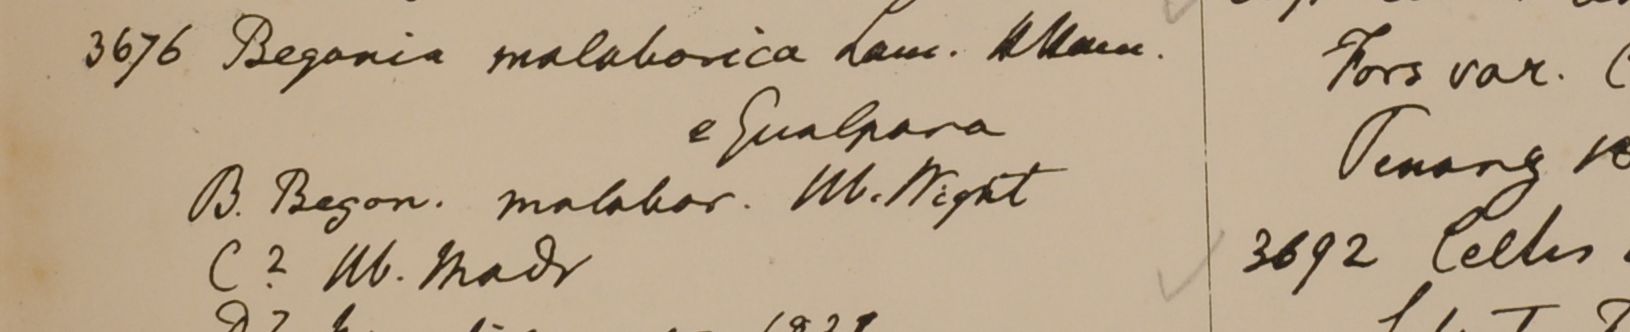 3676 Begonia malabarica Lam. H Ham.
e Gualpara
B. Begon. malabar. Hb. Wight
C? Hb. Madr
1821
Fors var. (
Penang
3692 Celtis